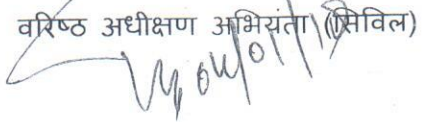 वरिष्ठ अधीक्षण अभियंता (सिविल)